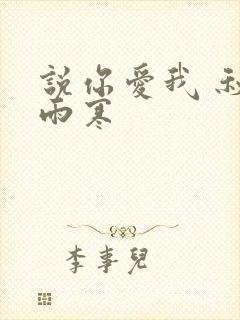 說你愛我
雨寒
李事兒